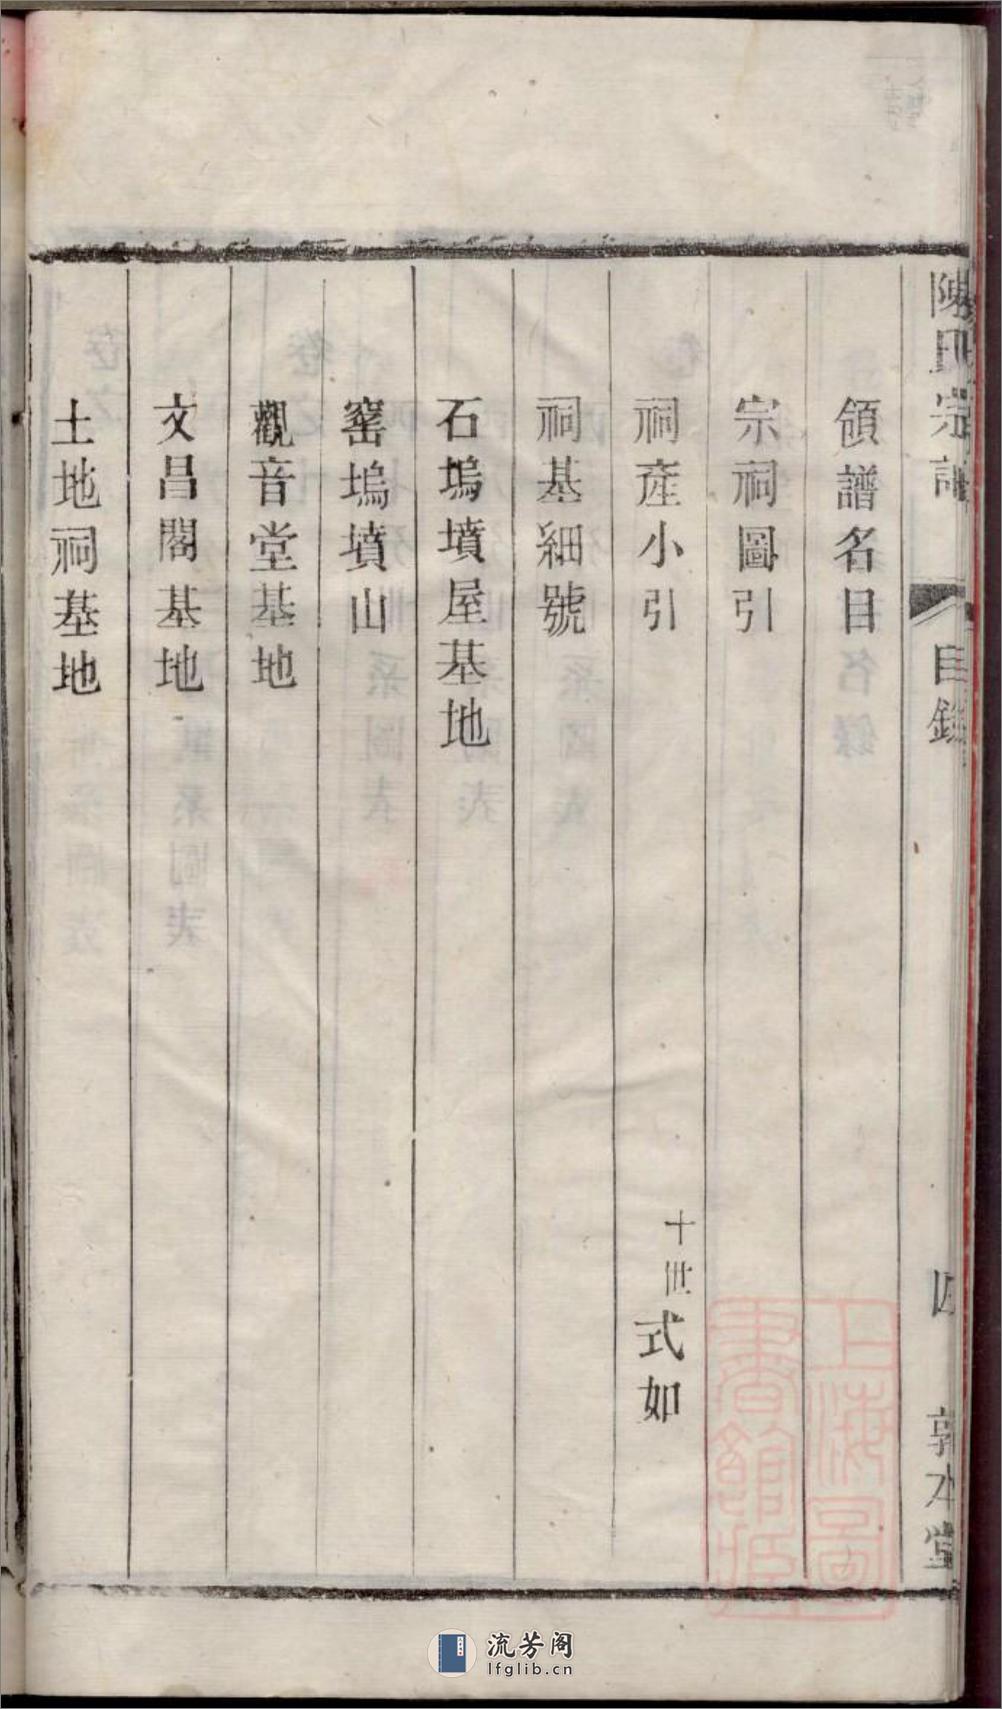 陳氏宗譜 目錄 四 敦本堂
領譜名目
宗祠圖引
祠產小引 十世 式如
祠基細號
石塢墳屋基地
窰塢墳山
觀音堂基地
文昌閣基地
土地祠基地
上海圖
書館藏
流芳阁
lfglib.cn